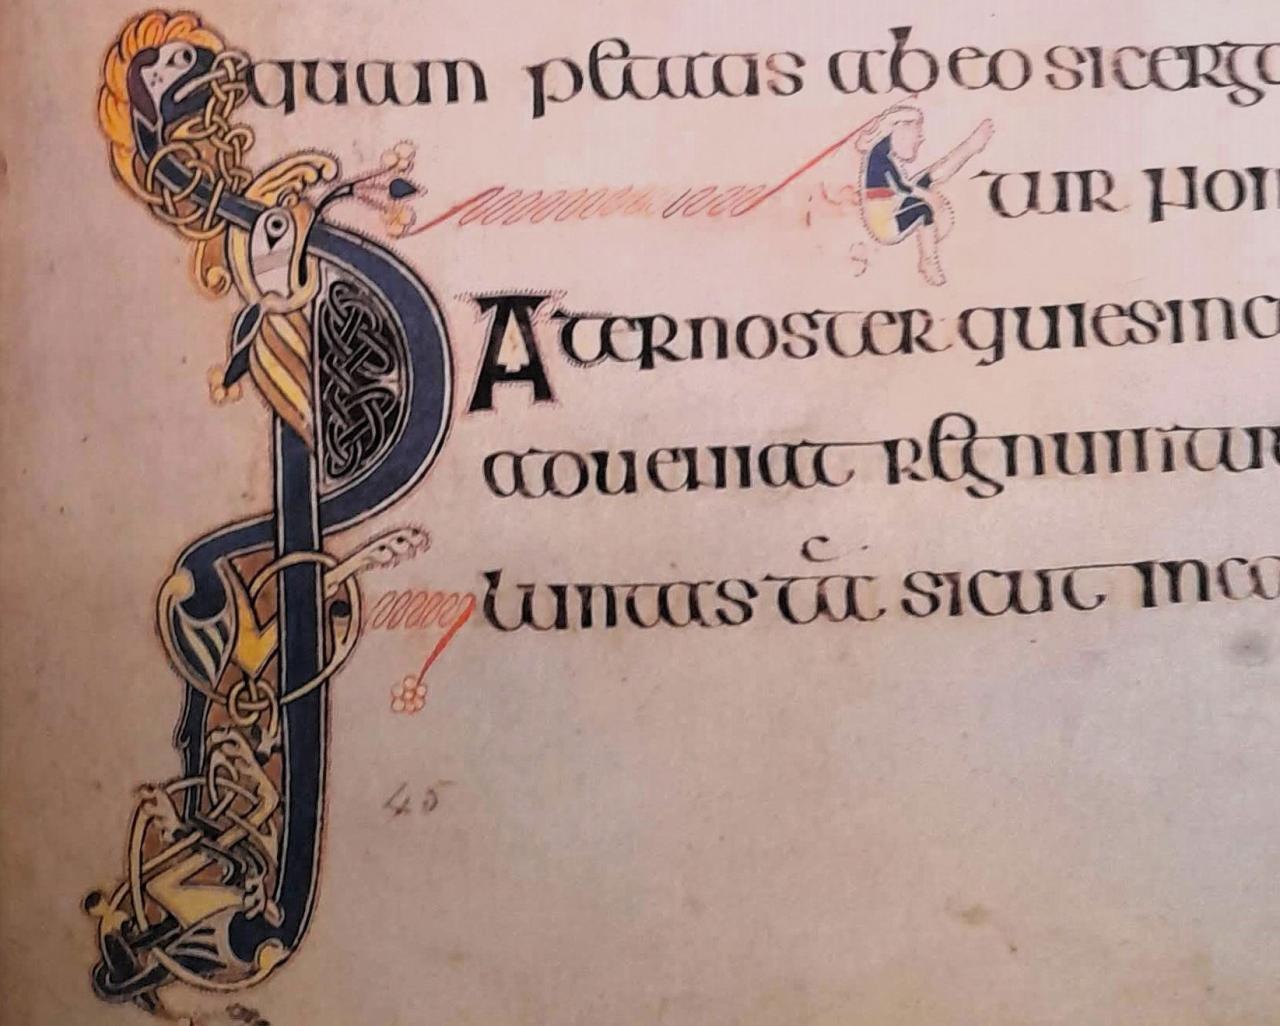 quam petatis abeo sicergo
tur nom
PAternoster quiesinc
adueniat regnumtuu
luntas tua sicut inca
45